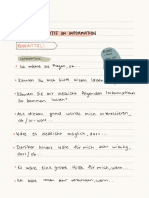 BITTE UM INFORMATION
REDEMITTEL:
• Ich möchte Sie fragen, ob...
• Können Sie mich bitte wissen lassen
• Können Sie mir vielleicht folgenden Informationen
zukommen lassen?
• Aus diesem Grund würde mich interessieren,
ob / w-wort
• Wäre es vielleicht möglich, dass...
• Darüber hinaus wäre für mich wichtig,
dass / ob...
• Es wäre eine große Hilfe für mich, wenn...
• Ich wäre Ihnen sehr verbunden, wenn...